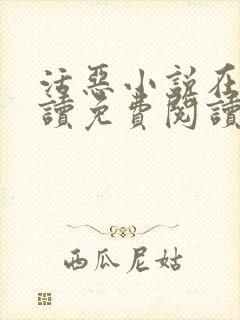 活惡小說在
讀免費閱讀
西瓜尼姑